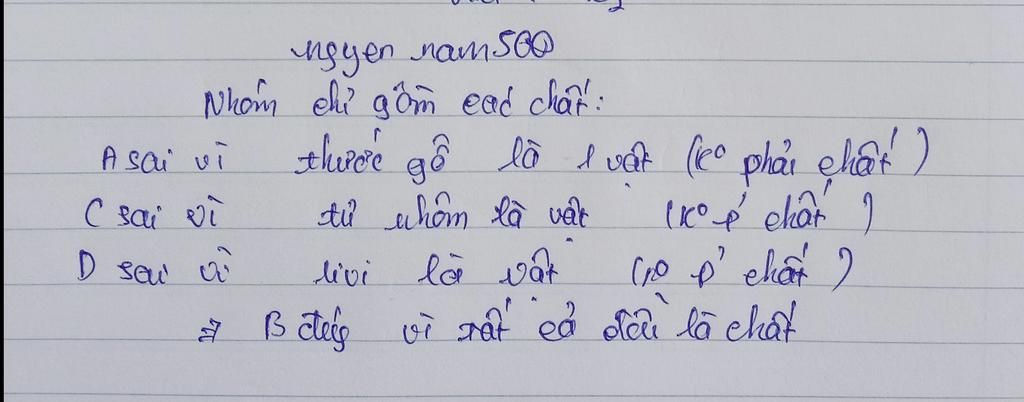 nguyen nam500
Nhóm chỉ gồm các chất:
A sai vì thước gỗ là 1 vật (Ko phải chất)
C sai vì tủ nhôm là vật (Ko p' chất)
D sai vì tivi là vật (Ko p' chất)
⇒ B đúng vì tất cả đều là chất